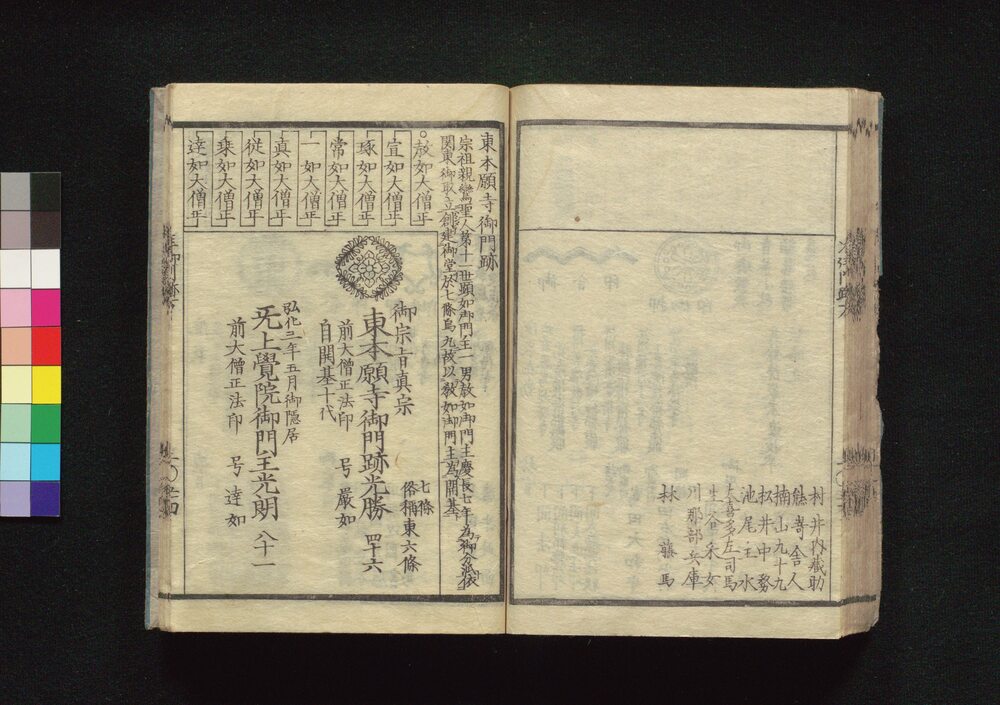 村井内蔵助
熊嵜舎人
楠山九十九
松井中務
池尾主水
大喜多左司馬
川那部兵庫
林藤馬
東本願寺御門跡
宗祖親鸞聖人第十一世顕如御門主一男教如御門主慶長七年為御分派依
関東御取立創建御堂於七條烏丸故以教如御門主為開基
教如大僧正
宣如大僧正
琢如大僧正
常如大僧正
一如大僧正
真如大僧正
従如大僧正
乗如大僧正
達如大僧正
御宗旨真宗
七條
俗稱東六條
東本願寺御門跡光勝 四十六
前大僧正法印 号嚴如
自開基十代
弘化三年五月御隠居
无上覺院御門主光朗 八十一
前大僧正法印 号達如